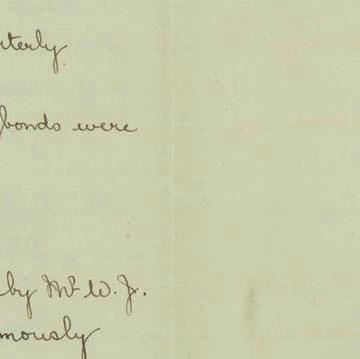 rterly
bonds were
by Mr. W. J.
mously